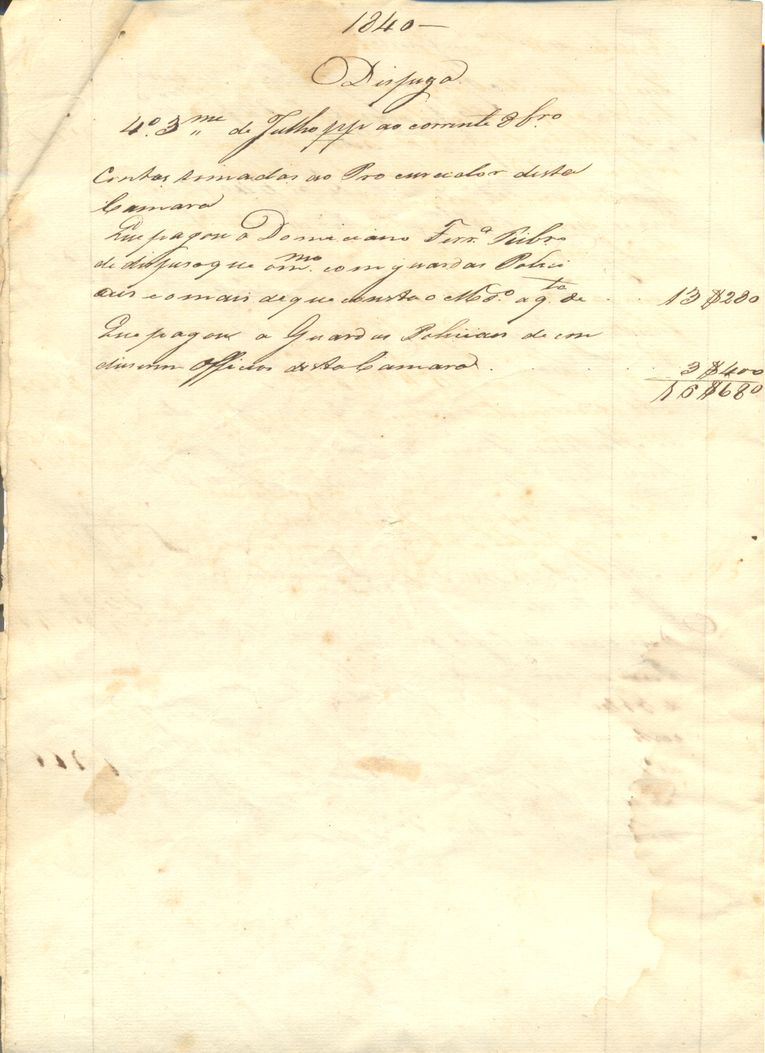 1840 —
Despeza
4º 3me de Julho pp ao corrente 8bro
Contas tomadas ao Procurador desta
Camara
Que pagou a Domiciano Ferrª Ribro
de despesa que com guardas Polici
aes e mais de que consta o Mdº a qta de 13$280
Que pagou a Guardas Policiaes de con
dusirem Officios desta Camara 3$400
16$680